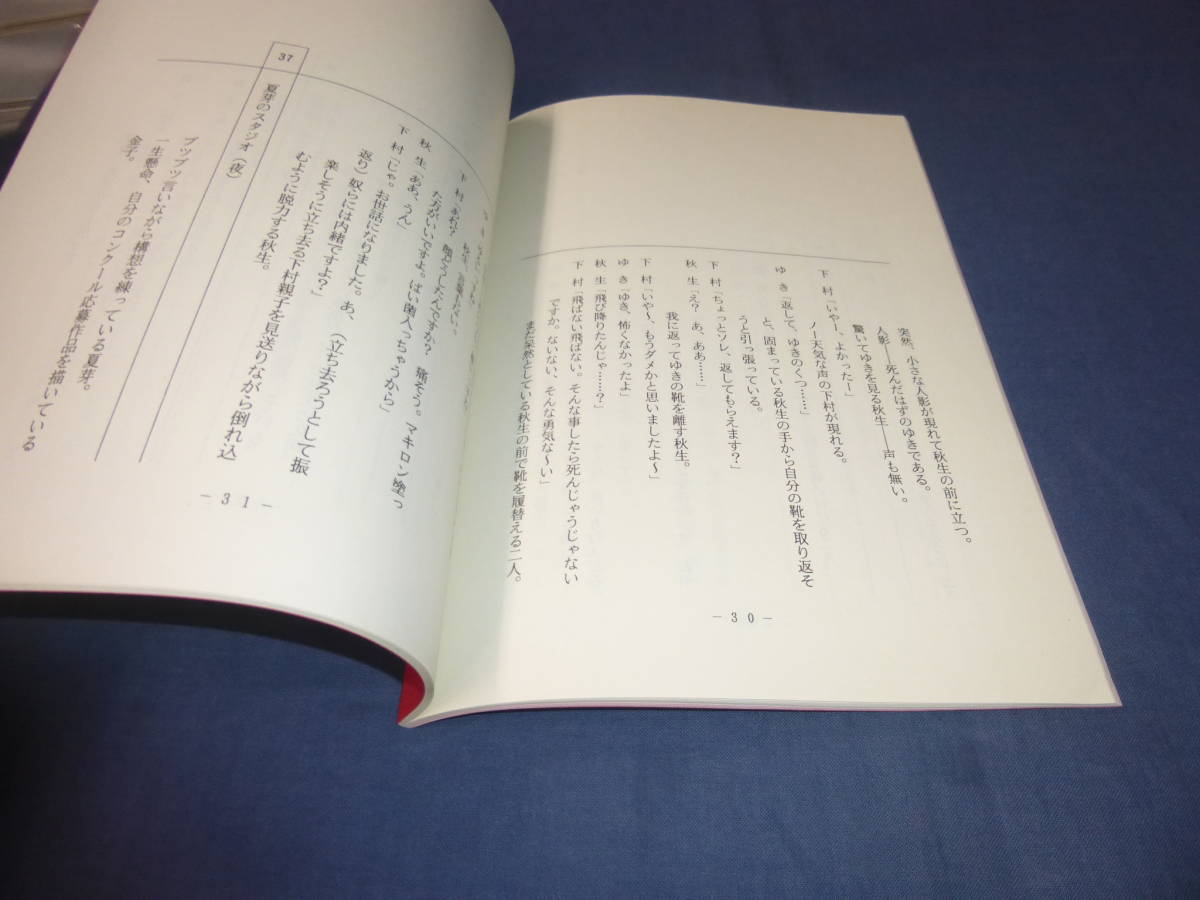 突然、小さな人影が現れて秋生の前に立つ。
人影――死んだはずのゆきである。
驚いてゆきを見る秋生――声も無い。
下 村「いやー、よかったー」
ノー天気な声の下村が現れる。
ゆ き「返して、ゆきのくつ……」
と、固まっている秋生の手から自分の靴を取り返そ
うと引っ張っている。
下 村「ちょっとソレ、返してもらえます？」
秋 生「え？ あ、ああ……」
我に返ってゆきの靴を離す秋生。
下 村「いや〜、もうダメかと思いましたよ〜」
ゆ き「ゆき、怖くなかったよ」
秋 生「飛び降りたんじゃ……？」
下 村「飛ばない飛ばない。そんな事したら死んじゃうじゃない
ですか。ないない、そんな勇気な〜い」
まだ呆然としている秋生の前で靴を履替える二人。
－30－
下 村「あれ？ 顔どうしたんですか？ 痛そう。マキロン塗っ
た方がいいですよ。ばい菌入っちゃうから」
秋 生「ああ、うん」
下 村「じゃ。お世話になりました。あ、（立ち去ろうとして振
返り）奴らには内緒ですよ？」
楽しそうに立ち去る下村親子を見送りながら倒れ込
むように脱力する秋生。
37
夏芽のスタジオ（夜）
ブツブツ言いながら構想を練っている夏芽。
一生懸命、自分のコンクール応募作品を描いている
金子。
－31－